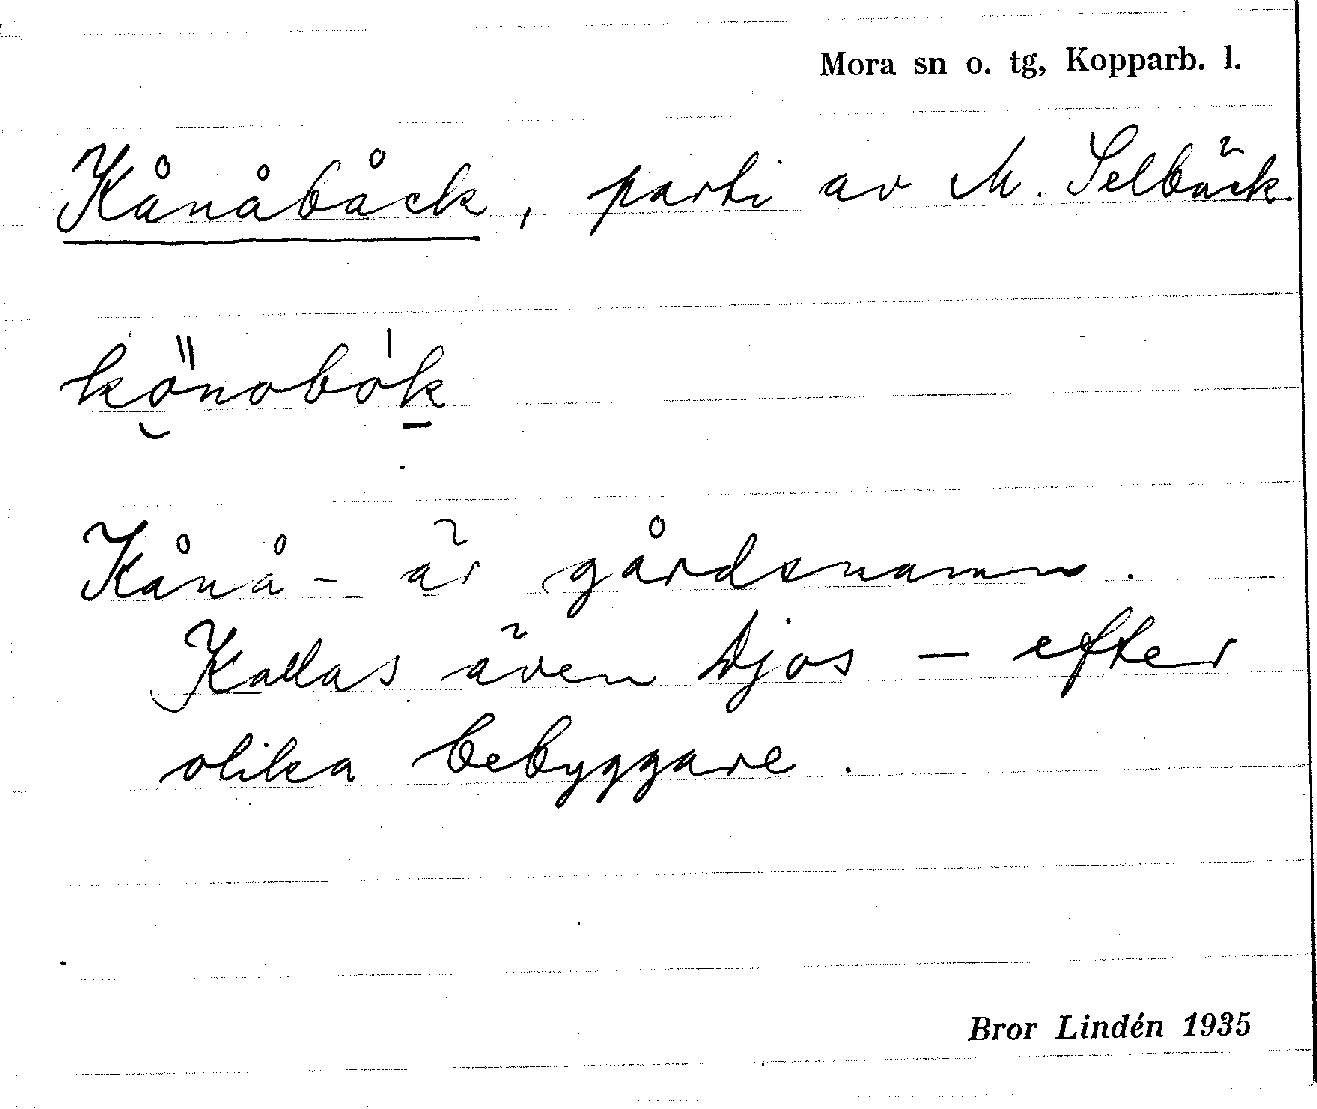 Mora sn o. tg, Kopparb. l.
Kånåbåck, parti av M. Selbäck.
kö̆nobók̲
Kånå- är gårdsnamn.
Kallas även Djos — efter
olika bebyggare.
Bror Lindén 1935